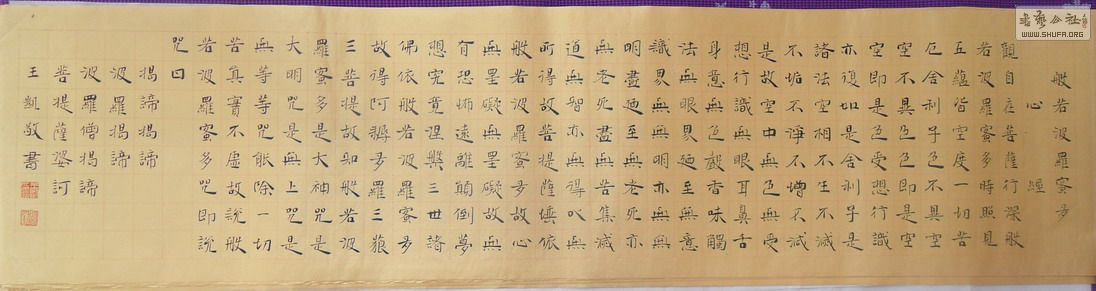 般若波羅蜜多
心經
觀自在菩薩行深般
若波羅蜜多時照見
五蘊皆空度一切苦
厄舍利子色不異空
空不異色色即是空
空即是色受想行識
亦復如是舍利子是
諸法空相不生不滅
不垢不淨不增不減
是故空中無色無受
想行識無眼耳鼻舌
身意無色聲香味觸
法無眼界廼至無意
識界無無明亦無無
明盡廼至無老死亦
無老死盡無苦集滅
道無智亦無得以無
所得故菩提薩埵依
般若波羅蜜多故心
無罣礙無罣礙故無
有恐怖遠離顛倒夢
想究竟涅槃三世諸
佛依般若波羅蜜多
故得阿耨多羅三藐
三菩提故知般若波
羅蜜多是大神咒是
大明咒是無上咒是
無等等咒能除一切
苦真實不虛故說般
若波羅蜜多咒即說
咒曰
揭諦揭諦
波羅揭諦
波羅僧揭諦
菩提薩婆訶
王凱敬書
WWW.SHUFA.ORG